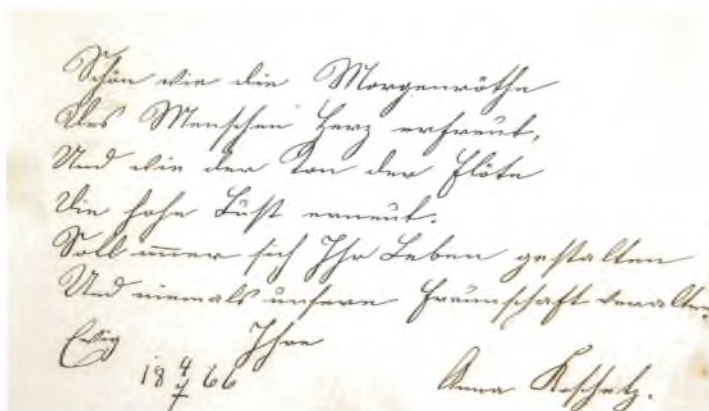 Schön wie die Morgenröthe
Des Menschen Herz erfreut,
Und wie der Ton der Flöte
Die hohe Lust erneut.
Soll immer sich Ihr Leben gestalten
Und niemals unsere Freunschaft veralten.
Ewig Ihre
18 4/7 66 Anna